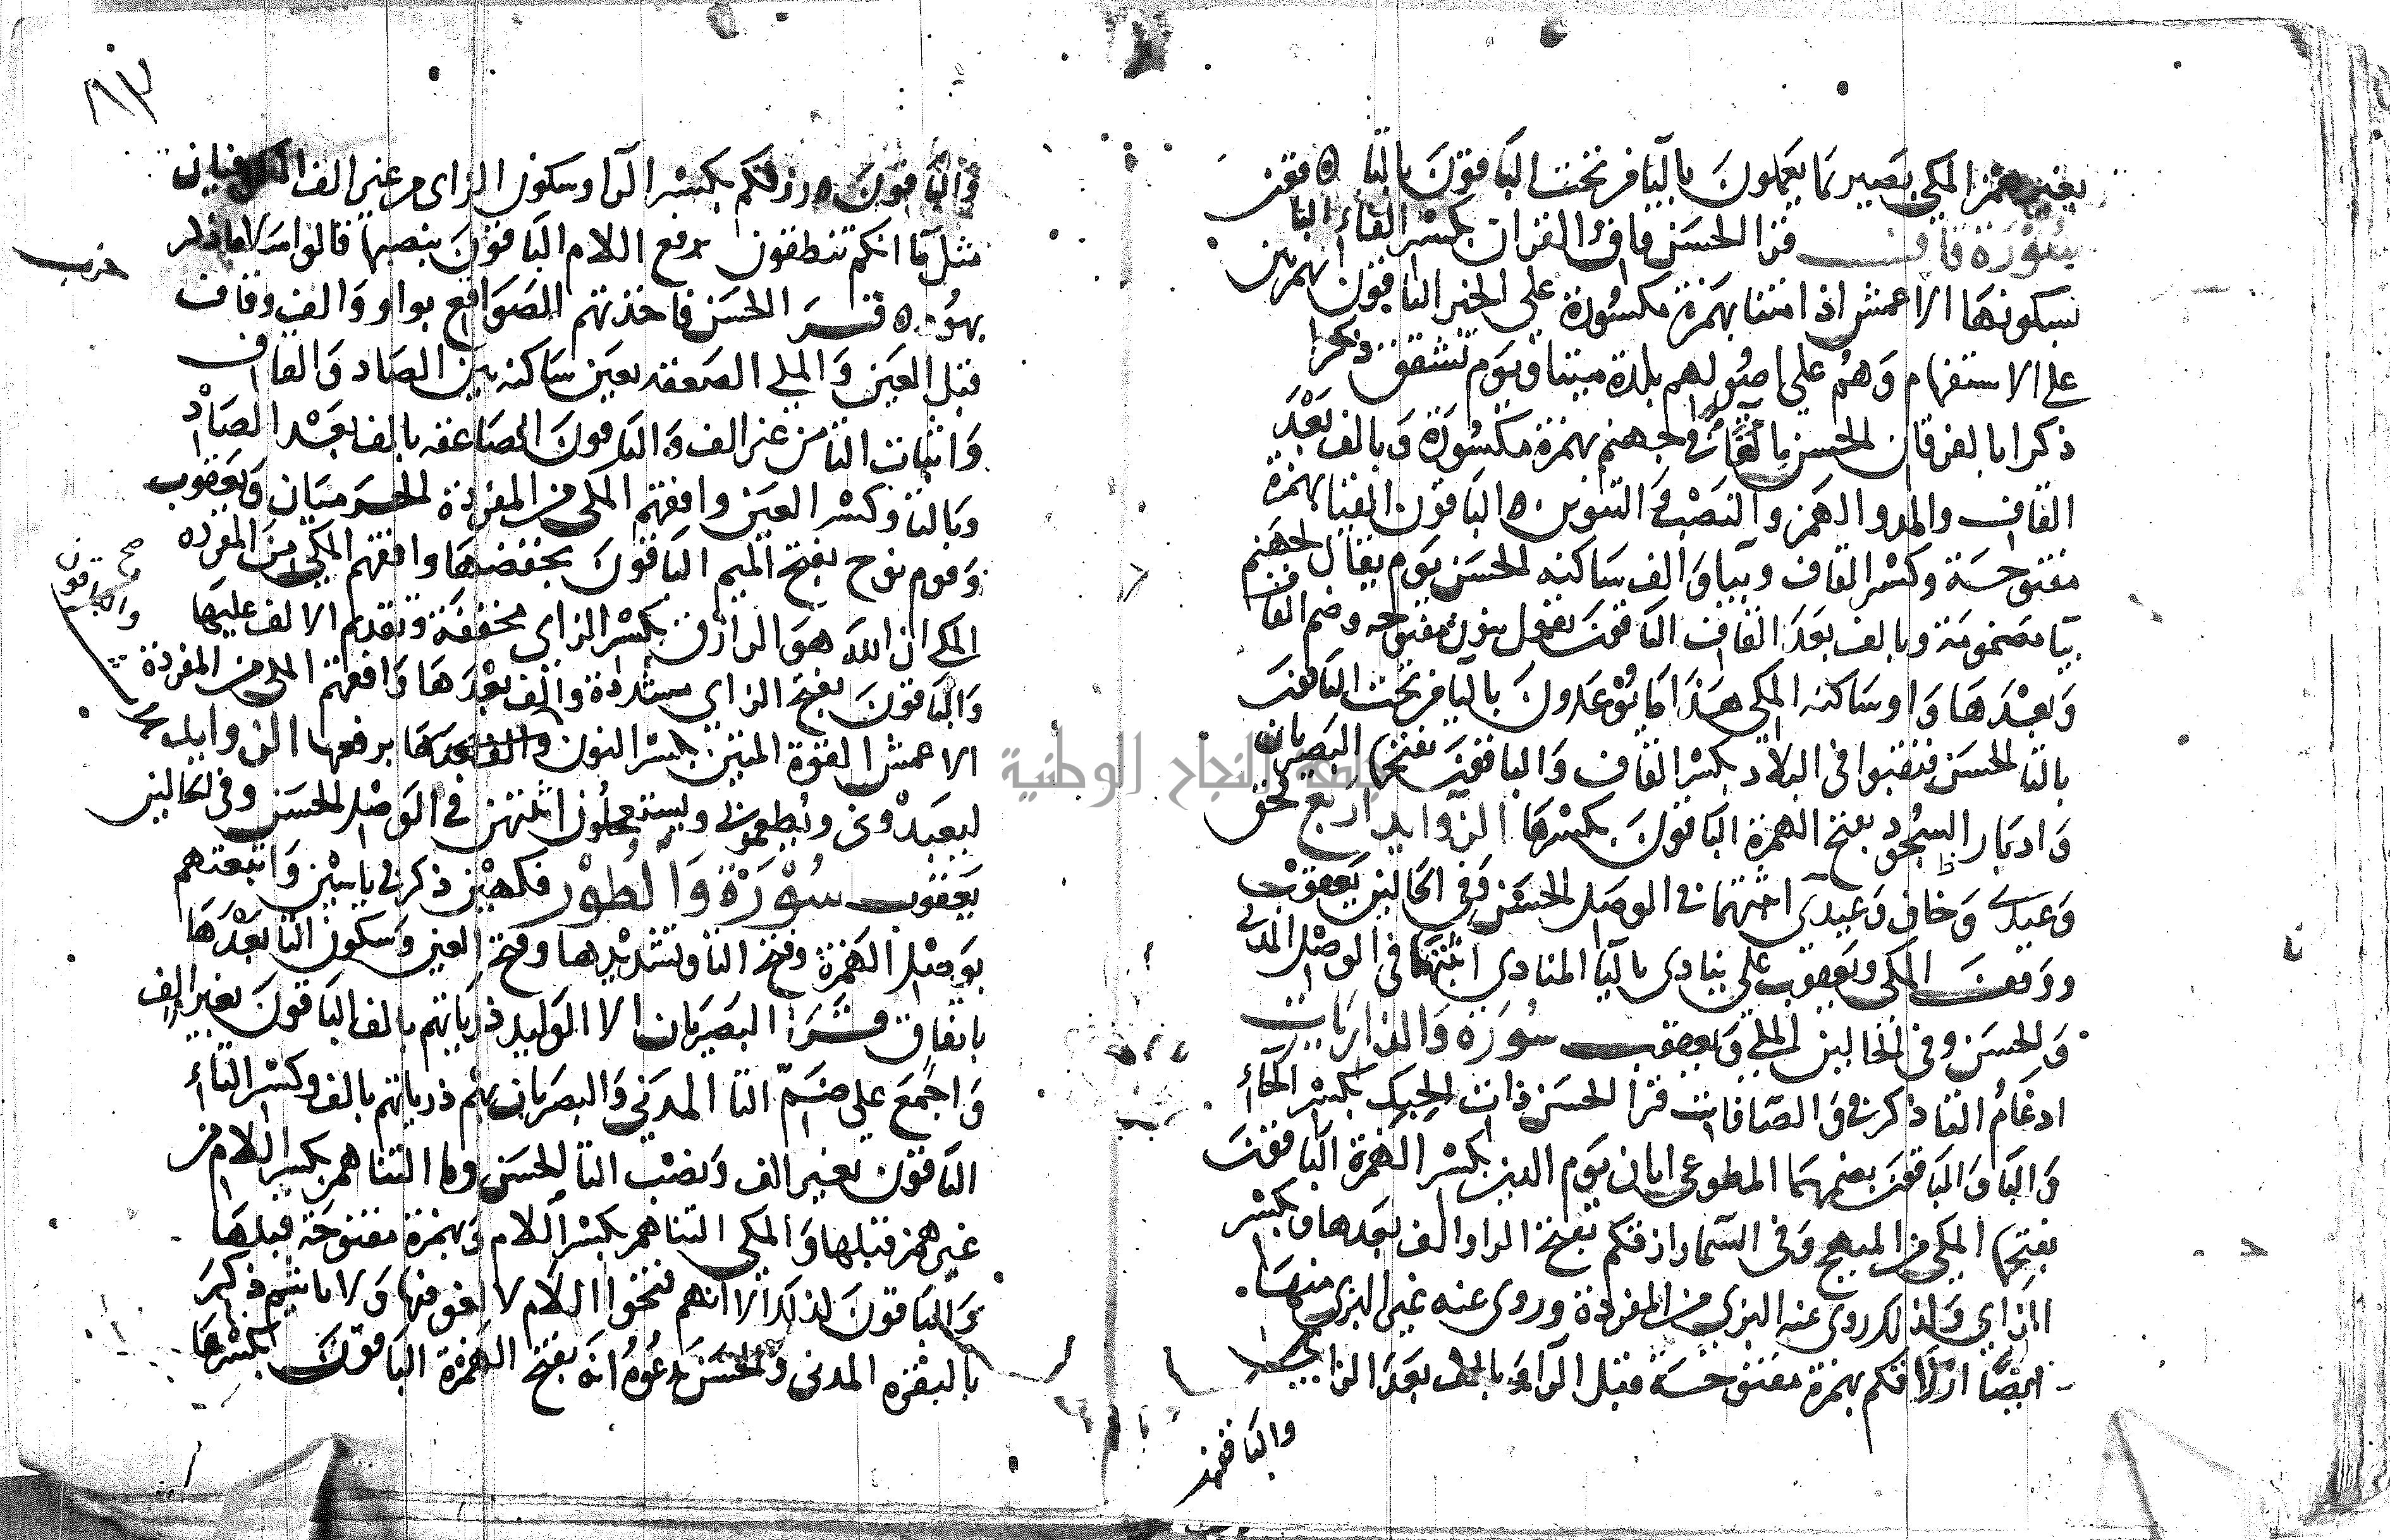 بغير همز المكي بصير بما يعملون باليا من تحت الباقون بالتا ٥ وقف
سورة قاف قرا الحسن قاف والقران بكسر الفاء الباقون
بسكونها الا اعمش اذا متنا بهمزة مكسورة على الخبر الباقون بهمزتين
على الاستفهام وهم على اصولهم بلدة ميتا ويوم تشقق ذكرا
ذكرا بالفرقان الحسن القاء في جهنم بهمزة مكسورة وبالف بعد
القاف والمد والهمز والنصب والتنوين ٥ الباقون القيا بهمزة
مفتوحة وكسر القاف وبيا والف ساكنه الحسن يوم يقال لجهنم
بيا مضمومة وبالف بعد القاف الباقون نقول بنون مفتوحه وضم القاف
وبعدها واو ساكنه المكي هذا ما توعدون باليا من تحت الباقون
بالتا الحسن فنقبوا في البلاد بكسر القاف والباقون بفتحها البصريان
وادبار السجود بفتح الهمزة الباقون بكسرها الزوايد اربع لحق
وعيدي وخاف وعيدي اثبتهما في الوصل الحسن وفي الحالين يعقوب
ووقف المكي ويعقوب على ينادي باليا المنادي اثبتها في الوصل المدني
والحسن وفي الحالين المكي ويعقوب سورة والذاريات
ادغام التا ذكر في والصافات قرا الحسن ذات الحبك بكسر الحاء
والبا والباقون بضمهما المطوعي ايان يوم الدين بكسر الهمزة الباقون
بفتحها المكي من المبهج وفي السما رازقكم بفتح الرا والف بعدها وبكسر
الزاي وكذلك روى عنه البزي من المفردة وروى عنه غير البزي منها
ايضا ارزاقكم بهمزة مفتوحة قبل الرا وبالف بعد الزاي
والباقون
وَالباقون ٥ رزقكم بكسر الرا وسكون الزاي من غير الف الكوفيان
مثل ما انكم تنطقون برفع اللام الباقون بنصبها قالوا سلاما ذكر
حزب
بهود ٥ قرا الحسن فاخذتهم الصواقع بواو والف وقاف
قبل العين والمكي الصعقه بعين ساكنه بين الصاد والقاف
واثبات التا من غير الف والباقون الصاعقه بالف بعد الصاد
وبالتا وكسر العين وافقهم المكي من المفردة الحرميان ويعقوب
وقوم نوح بفتح الميم الباقون بخفضها وافقهم المكي من المفرده
المكي ان الله هو الرازق بكسر الزاي مخففة وتقديم الالف عليها
والباقون بفتح الزاي مشددة والف بعدها وافقهم المكي من المفردة
الاعمش القوة المتين بكسر النون والباقون صح برفعها الزوايد ثلث
ليعبدوني ويطعموني ويستعجلون اثبتهن في الوصل الحسن وفي الحالين
يعقوب سورة والطور فكهين ذكر في ياسين واتبعتهم
بوصل الهمزة وفتح التا وتشديدها وفتح العين وسكون التا بعدها
باتفاق قرا البصريان الا الوليد ذرياتهم بالف الباقون بغير الف
واجمع على ضم التا المدني والبصريان بهم ذرياتهم بالف وكسر التاء
الباقون بغير الف ونصب التا الحسن وما التناهم بكسر اللام من
غير همز قبلها والمكي التناهم بكسر اللام وبهمزة مفتوحة قبلها
والباقون كذلك الا انهم فتحوا اللام لا لغو فيها ولا تاثيم ذكر
بالبقره المدني والحسن ندعوه انه بفتح الهمزة الباقون بكسرها